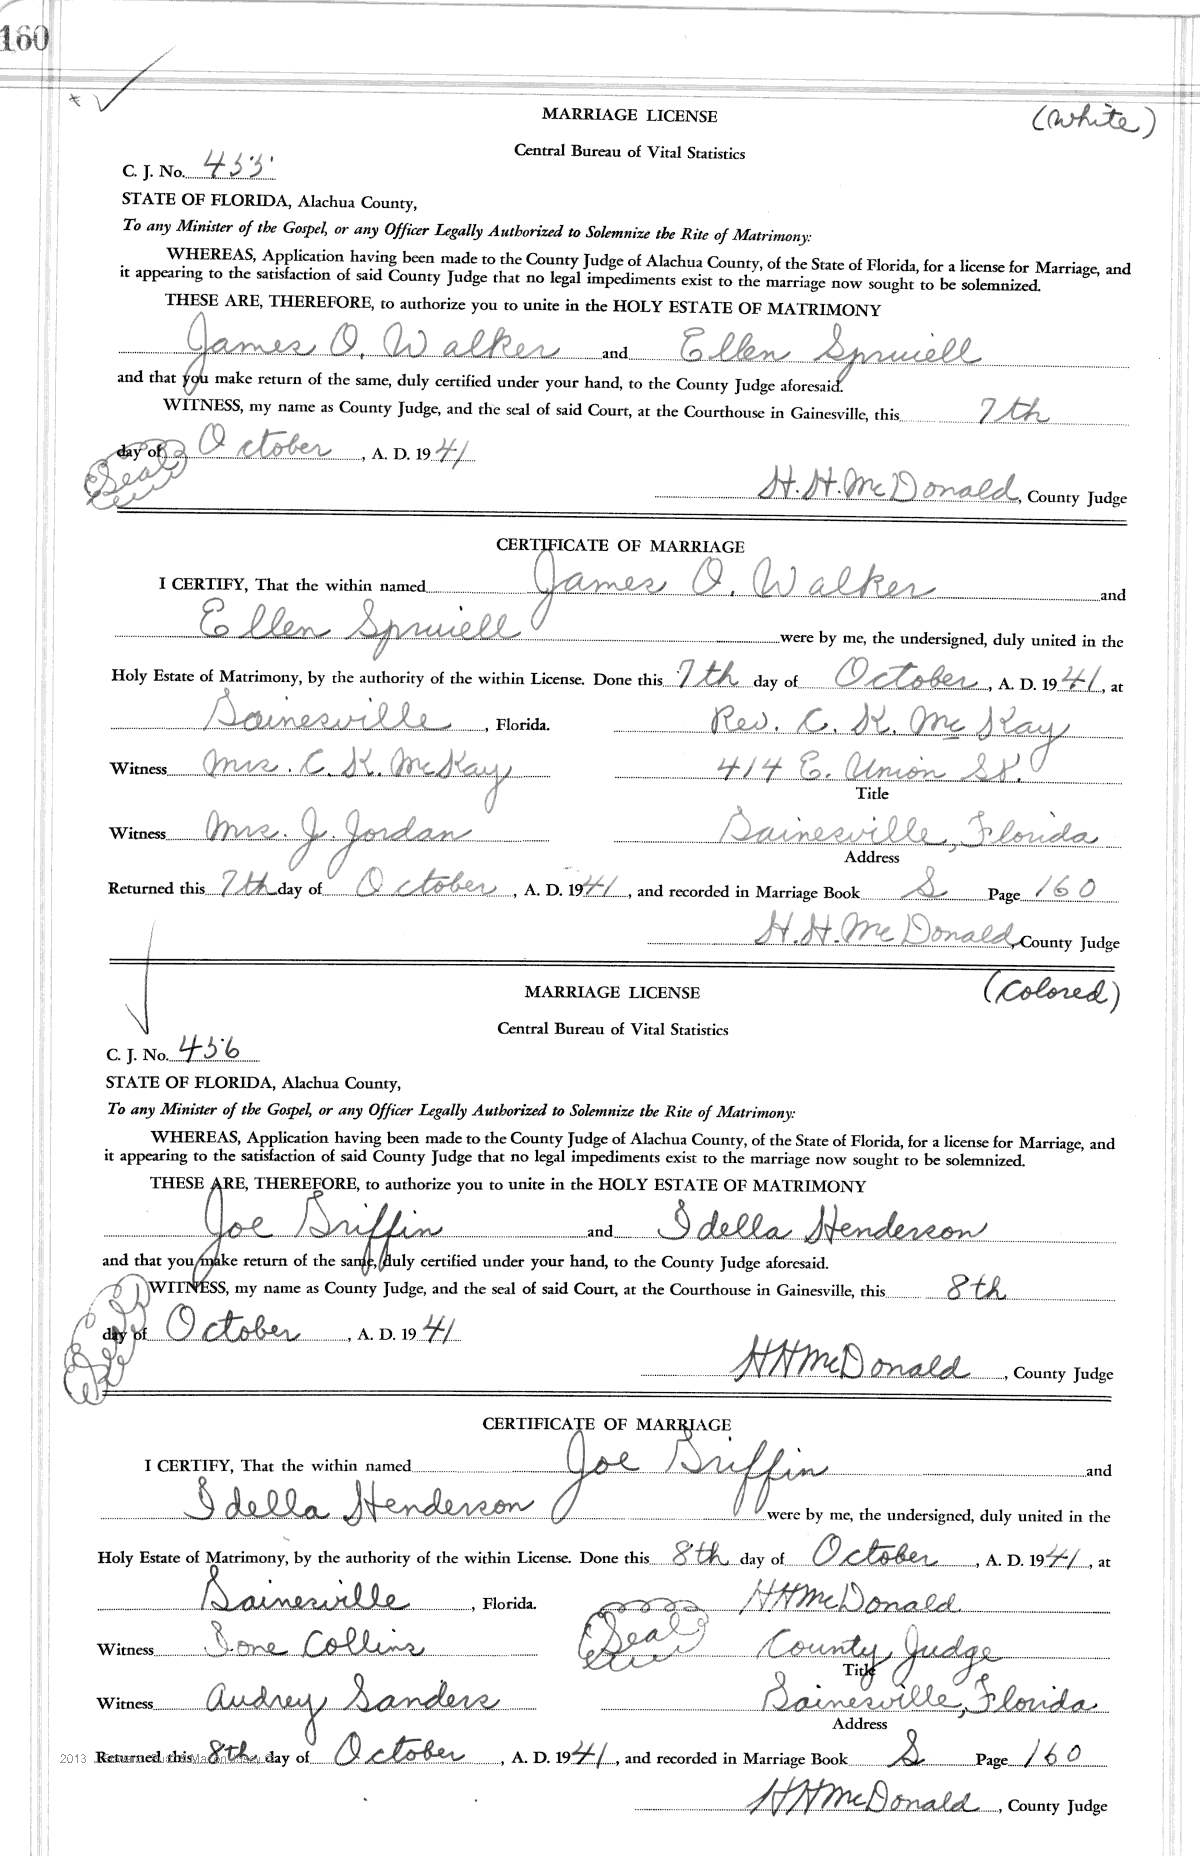 160
MARRIAGE LICENSE (White)
Central Bureau of Vital Statistics
C. J. No. 455
STATE OF FLORIDA, Alachua County,
To any Minister of the Gospel, or any Officer Legally Authorized to Solemnize the Rite of Matrimony:
WHEREAS, Application having been made to the County Judge of Alachua County, of the State of Florida, for a license for Marriage, and
it appearing to the satisfaction of said County Judge that no legal impediments exist to the marriage now sought to be solemnized.
THESE ARE, THEREFORE, to authorize you to unite in the HOLY ESTATE OF MATRIMONY
James O. Walker and Ellen Spruiell
and that you make return of the same, duly certified under your hand, to the County Judge aforesaid.
WITNESS, my name as County Judge, and the seal of said Court, at the Courthouse in Gainesville, this 7th
day of October, A. D. 1941
Seal
H. H. McDonald, County Judge
CERTIFICATE OF MARRIAGE
I CERTIFY, That the within named James O. Walker and
Ellen Spruiell were by me, the undersigned, duly united in the
Holy Estate of Matrimony, by the authority of the within License. Done this 7th day of October, A. D. 1941, at
Gainesville, Florida. Rev. C. K. McKay
Witness Mrs. C. K. McKay 414 E. Union St.
Title
Witness Mrs. J. Jordan Gainesville, Florida
Address
Returned this 7th day of October, A. D. 1941, and recorded in Marriage Book S Page 160
H. H. McDonald, County Judge
MARRIAGE LICENSE (Colored)
Central Bureau of Vital Statistics
C. J. No. 456
STATE OF FLORIDA, Alachua County,
To any Minister of the Gospel, or any Officer Legally Authorized to Solemnize the Rite of Matrimony:
WHEREAS, Application having been made to the County Judge of Alachua County, of the State of Florida, for a license for Marriage, and
it appearing to the satisfaction of said County Judge that no legal impediments exist to the marriage now sought to be solemnized.
THESE ARE, THEREFORE, to authorize you to unite in the HOLY ESTATE OF MATRIMONY
Joe Griffin and Idella Henderson
and that you make return of the same, duly certified under your hand, to the County Judge aforesaid.
WITNESS, my name as County Judge, and the seal of said Court, at the Courthouse in Gainesville, this 8th
day of October, A. D. 1941
Seal
H H McDonald, County Judge
CERTIFICATE OF MARRIAGE
I CERTIFY, That the within named Joe Griffin and
Idella Henderson were by me, the undersigned, duly united in the
Holy Estate of Matrimony, by the authority of the within License. Done this 8th day of October, A. D. 1941, at
Gainesville, Florida. H H McDonald
Witness Ione Collins Seal County Judge
Title
Witness Audrey Sanders Gainesville, Florida
Address
2013 Returned this 8th day of October, A. D. 1941, and recorded in Marriage Book S Page 160
H H McDonald, County Judge